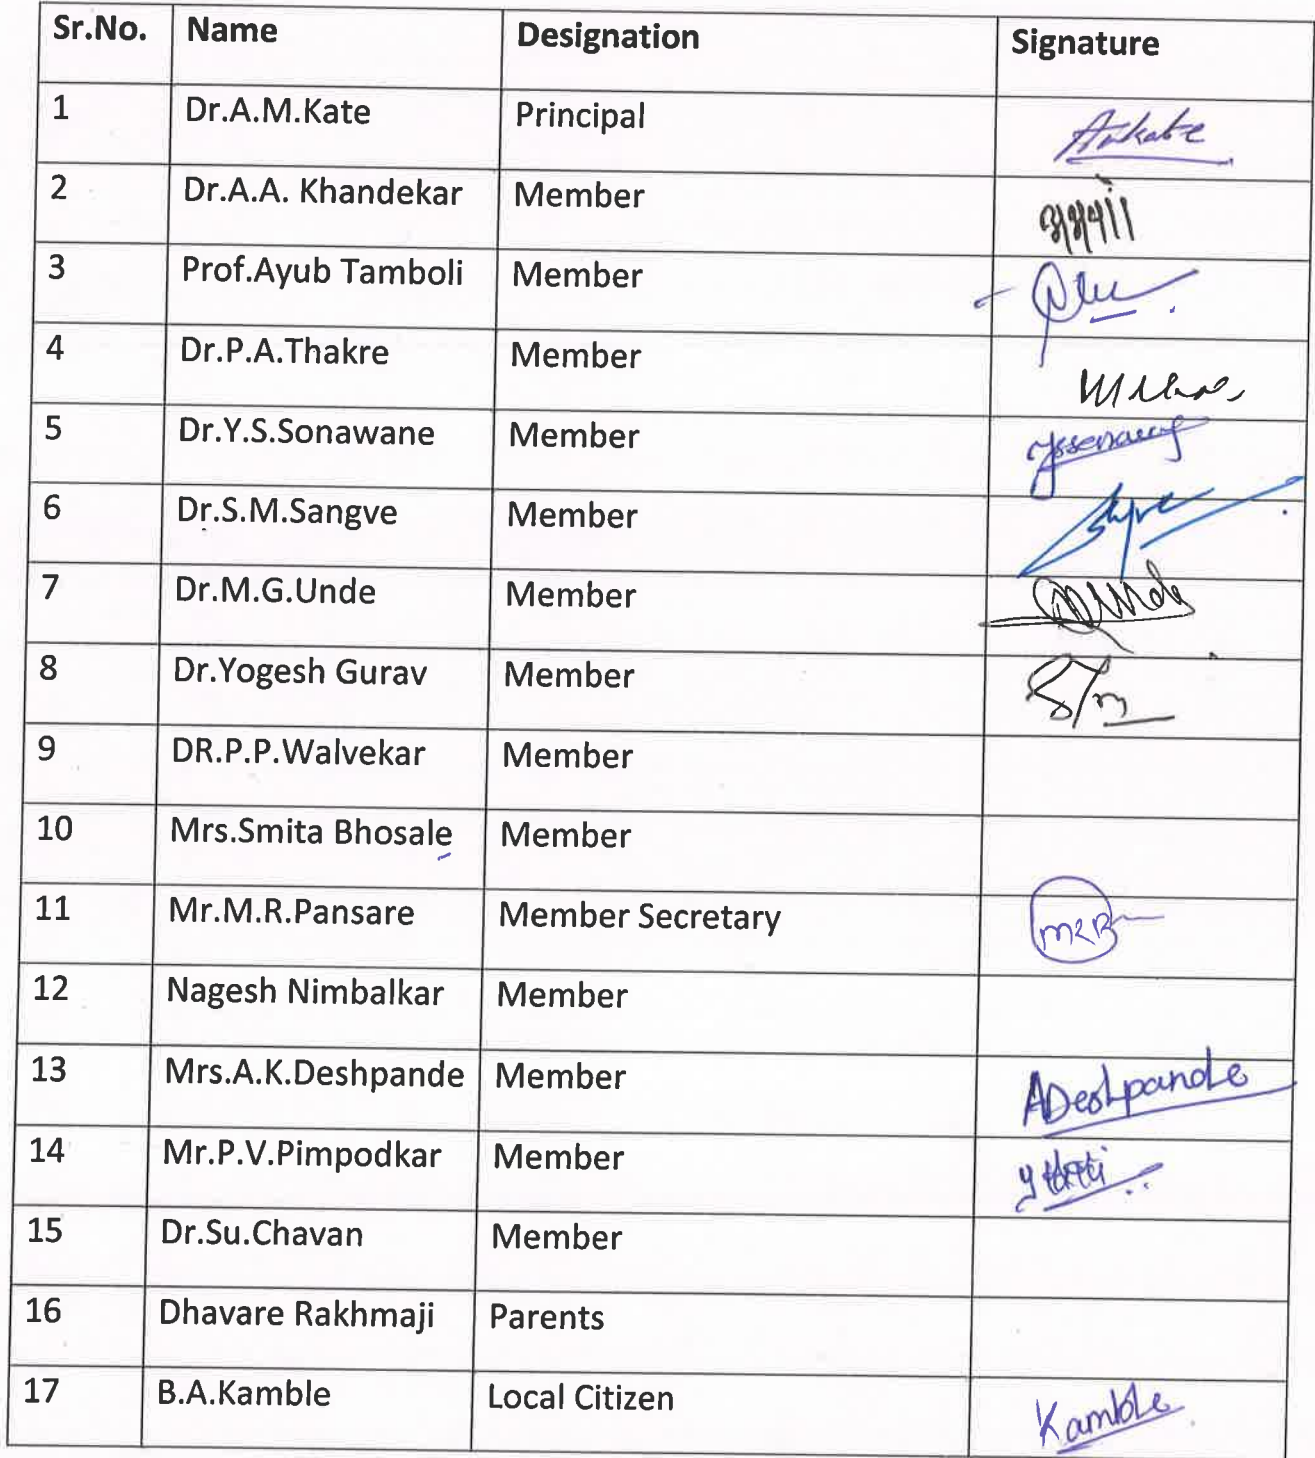 Sr.No. Name Designation Signature
1 Dr.A.M.Kate Principal Amkate
2 Dr.A.A. Khandekar Member
3 Prof.Ayub Tamboli Member
4 Dr.P.A.Thakre Member
5 Dr.Y.S.Sonawane Member
6 Dr.S.M.Sangve Member
7 Dr.M.G.Unde Member
8 Dr.Yogesh Gurav Member
9 DR.P.P.Walvekar Member
10 Mrs.Smita Bhosale Member
11 Mr.M.R.Pansare Member Secretary
12 Nagesh Nimbalkar Member
13 Mrs.A.K.Deshpande Member ADeshpande
14 Mr.P.V.Pimpodkar Member
15 Dr.Su.Chavan Member
16 Dhavare Rakhmaji Parents
17 B.A.Kamble Local Citizen Kamble